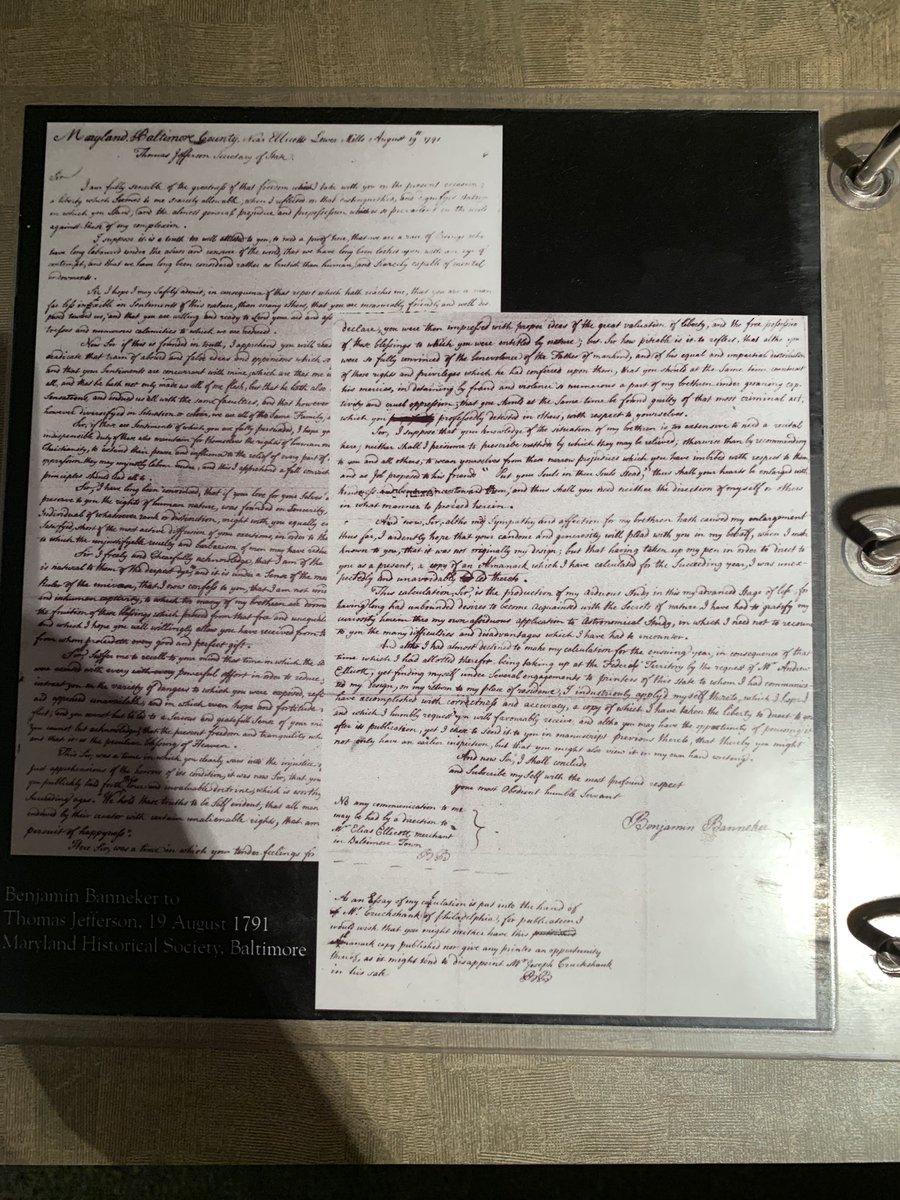 Maryland, Baltimore County, Near Ellicotts Lower Mills August 19th 1791
Thomas Jefferson Secretary of State.
Sir
I am fully sensible of the greatness of that freedom which I take with you on the present occasion;
a liberty which Seemed to me scarcely allowable, when I reflected on that distinguished, and dignifyed station
in which you Stand; and the almost general prejudice and prepossession which is so prevailent in the world
against those of my complexion.
I suppose it is a truth too well attested to you, to need a proof here, that we are a race of Beings who
have long laboured under the abuse and censure of the world, that we have long been looked upon with an eye of
contempt, and that we have long been considered rather as brutish than human, and Scarcely capable of mental
endowments.
Sir, I hope I may Safely admit, in consequence of that report which hath reached me, that you are a man
far less inflexible in Sentiments of this nature, than many others, that you are measurably friendly and well dis
posed toward us, and that you are willing and ready to Lend your aid and ass
tresses and numerous calamities to which we are reduced.
Now Sir if this is founded in truth, I apprehend you will
eradicate that train of absurd and false ideas and oppinions which so
and that your Sentiments are concurrent with mine, which are that one
all, and that he hath not only made us all of one flesh, but that he hath also
Sensations, and endued us all with the same faculties, and that however
however diversifyed in Situation or colour, we are all of the Same Family, a
Sir, if these are Sentiments of which you are fully persuaded, I hope you
indispensible duty of those who maintain for themselves the rights of human na
Christianity, to extend their power and influence to the relief of every part of
oppression they may unjustly labour under, and this I apprehend a full convict
principles should lead all to.
Sir, I have long been convinced, that if your love for your Selves
preserve to you the rights of human nature, was founded on Sincerity,
Individuals of whatsoever rank or distinction, might with you equally
Satisfyed, short of the most active diffusion of your exertions, in order to the
to which the unjustifyable cruelty and barbarism of men may have reduc
Sir I freely and Chearfully acknowledge, that I am of the
is natural to them of the deepest dye, and it is under a Sense of the mos
Ruler of the universe, that I now confess to you, that I am not under
and inhuman captivity, to which too many of my brethren are doom
the fruition of those blessings which proceed from that free and unequall
and which I hope you will willingly allow you have received from
from whom proceedeth every good and perfect gift.
Sir, Suffer me to recall to your mind that time in which the
were exerted with every powerful effort in order to reduce
intreat you on the variety of dangers to which you were exposed, refl
and appeared unavailable, and in which even hope and fortitude
flict, and you cannot but be led to a Serious and gratefull Sense of your
You cannot but acknowledge, that the present freedom and tranquility wh
and that it is the peculiar blessing of Heaven.
This Sir, was a time in which you clearly saw into the injustice,
just apprehensions of the horrors of its condition, it was now Sir, that you
you publickly held forth this true and invaluable doctrine, which is worthy
Succeeding ages. "We hold these truths to be Self evident, that all men
endowed by their creator with certain unalienable right, that am
pursuit of happyness".
Here Sir, was a time in which your tender feelings for
declare, you were then impressed with proper ideas of the great valuation of liberty, and the free possession
of those blessings to which you were entitled by nature; but Sir how pitiable is it to reflect, that altho you
were so fully convinced of the benevolence of the Father of mankind, and of his equal and impartial distribution
of those rights and privileges which he had conferred upon them, that you should at the Same time counteract
his mercies, in detaining by fraud and violence so numerous a part of my brethren under groaning cap
tivity and cruel oppression, that you should at the Same time be found guilty of that most criminal act,
which you professedly detested in others, with respect to yourselves.
Sir, I suppose that your knowledge of the situation of my brethren is too extensive to need a recital
here; neither shall I presume to prescribe methods by which they may be relieved; otherwise than by recommending
to you and all others, to wean yourselves from these narrow prejudices which you have imbibed with respect to them
and as Job proposed to his friends "Put your Souls in their Souls Stead," thus shall your hearts be enlarged with
kindness and benevolence toward them, and thus shall you need neither the direction of myself or others
in what manner to proceed herein.
And now, Sir, altho my Sympathy and affection for my brethren hath caused my enlargement
thus far, I ardently hope that your candour and generosity will plead with you in my behalf, when I make
known to you, that it was not originally my design; but that having taken up my pen in order to direct to
you as a present, a copy of an Almanack which I have calculated for the Succeeding year, I was unex
pectedly and unavoidably led thereto.
This calculation, Sir, is the production of my arduous Study in this my advanced Stage of life; for
having long had unbounded desires to become acquainted with the Secrets of nature I have had to gratify my
curiosity herein thro my own assiduous application to Astronomical Study, in which I need not to recount
to you the many difficulties and disadvantages which I have had to encounter.
And altho I had almost declined to make my calculation for the ensuing year, in consequence of that
time which I had allotted therefor being taking up at the Federal Territory by the request of Mr Andrew
Ellicott, yet finding myself under Several engagements to printers of this state to whom I had communica
ted my design, on my return to my place of residence, I industriously applied myself thereto, which I hope I
have accomplished with correctness and accuracy, a copy of which I have taken the liberty to direct to you
and which I humbly request you will favourably receive, and altho you may have the opportunity of perusing it
after its publication, yet I chose to send it to you in manuscript previous thereto, that thereby you might
not only have an earlier inspection, but that you might also view it in my own hand writing.
And now Sir, I shall conclude
and Subscribe my Self with the most profound respect
your most Obedient humble Servant
Benjamin Banneker
NB any communication to me
may be had by a direction to
Mr Elias Ellicott merchant
in Baltimore Town
BB
As an Essay of my calculation is put into the hand of
Mr Cruckshank of Philadelphia, for publication I
would wish that you might neither have this
Almanack copy published nor give any printer an opportunity
thereof, as it might tend to disappoint Mr Joseph Cruckshank
in his sale.
BB
Benjamin Banneker to
Thomas Jefferson, 19 August 1791
Maryland Historical Society, Baltimore